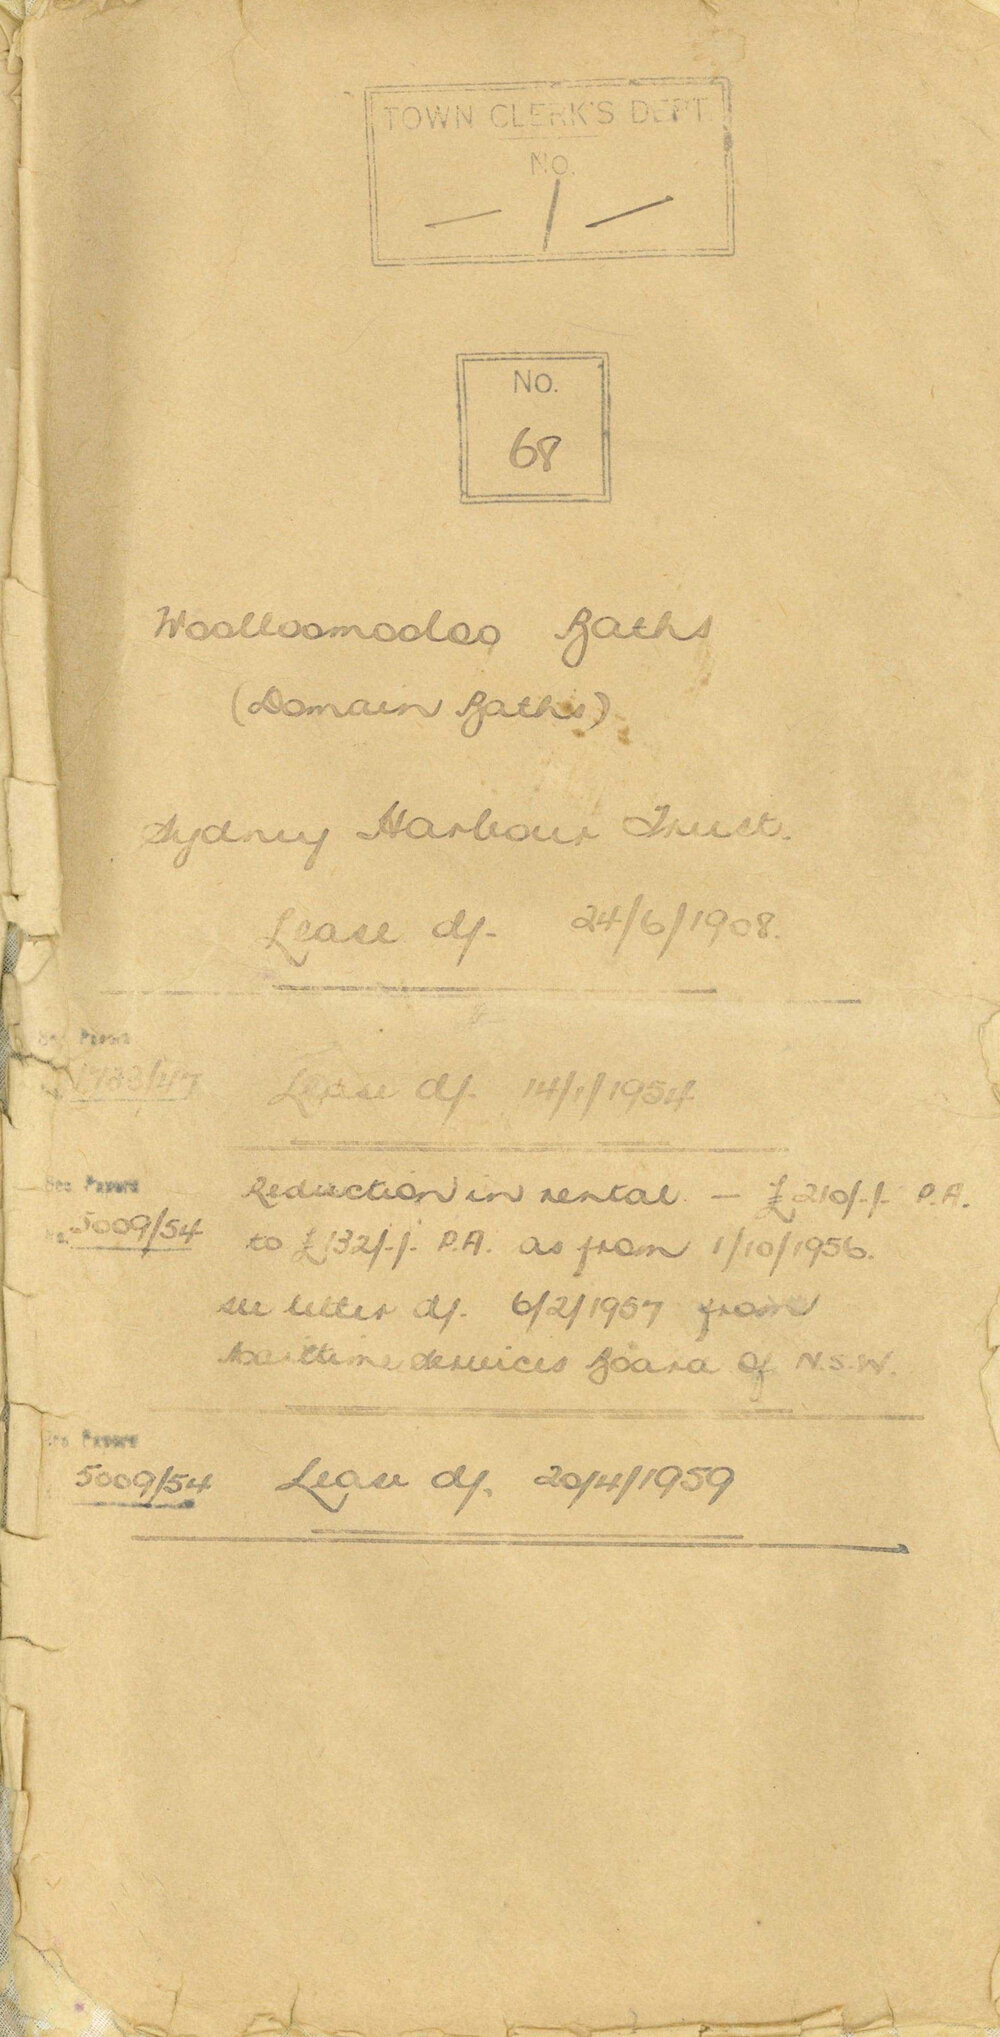 TOWN CLERK'S DEPT.
No.
— 1 —
No.
68
Woolloomooloo Baths
(Domain Baths)
Sydney Harbour Trust.
Lease d/- 24/6/1908.
See Papers
1733/47
Lease d/- 14/1/1954
See Papers
No. 5009/54
Reduction in rental — £210/-/- P.A.
to £132/-/- P.A. as from 1/10/1956.
see letter d/- 6/2/1957 from
Maritime Services Board of N.S.W.
See Papers
5009/54
Lease d/- 20/4/1959